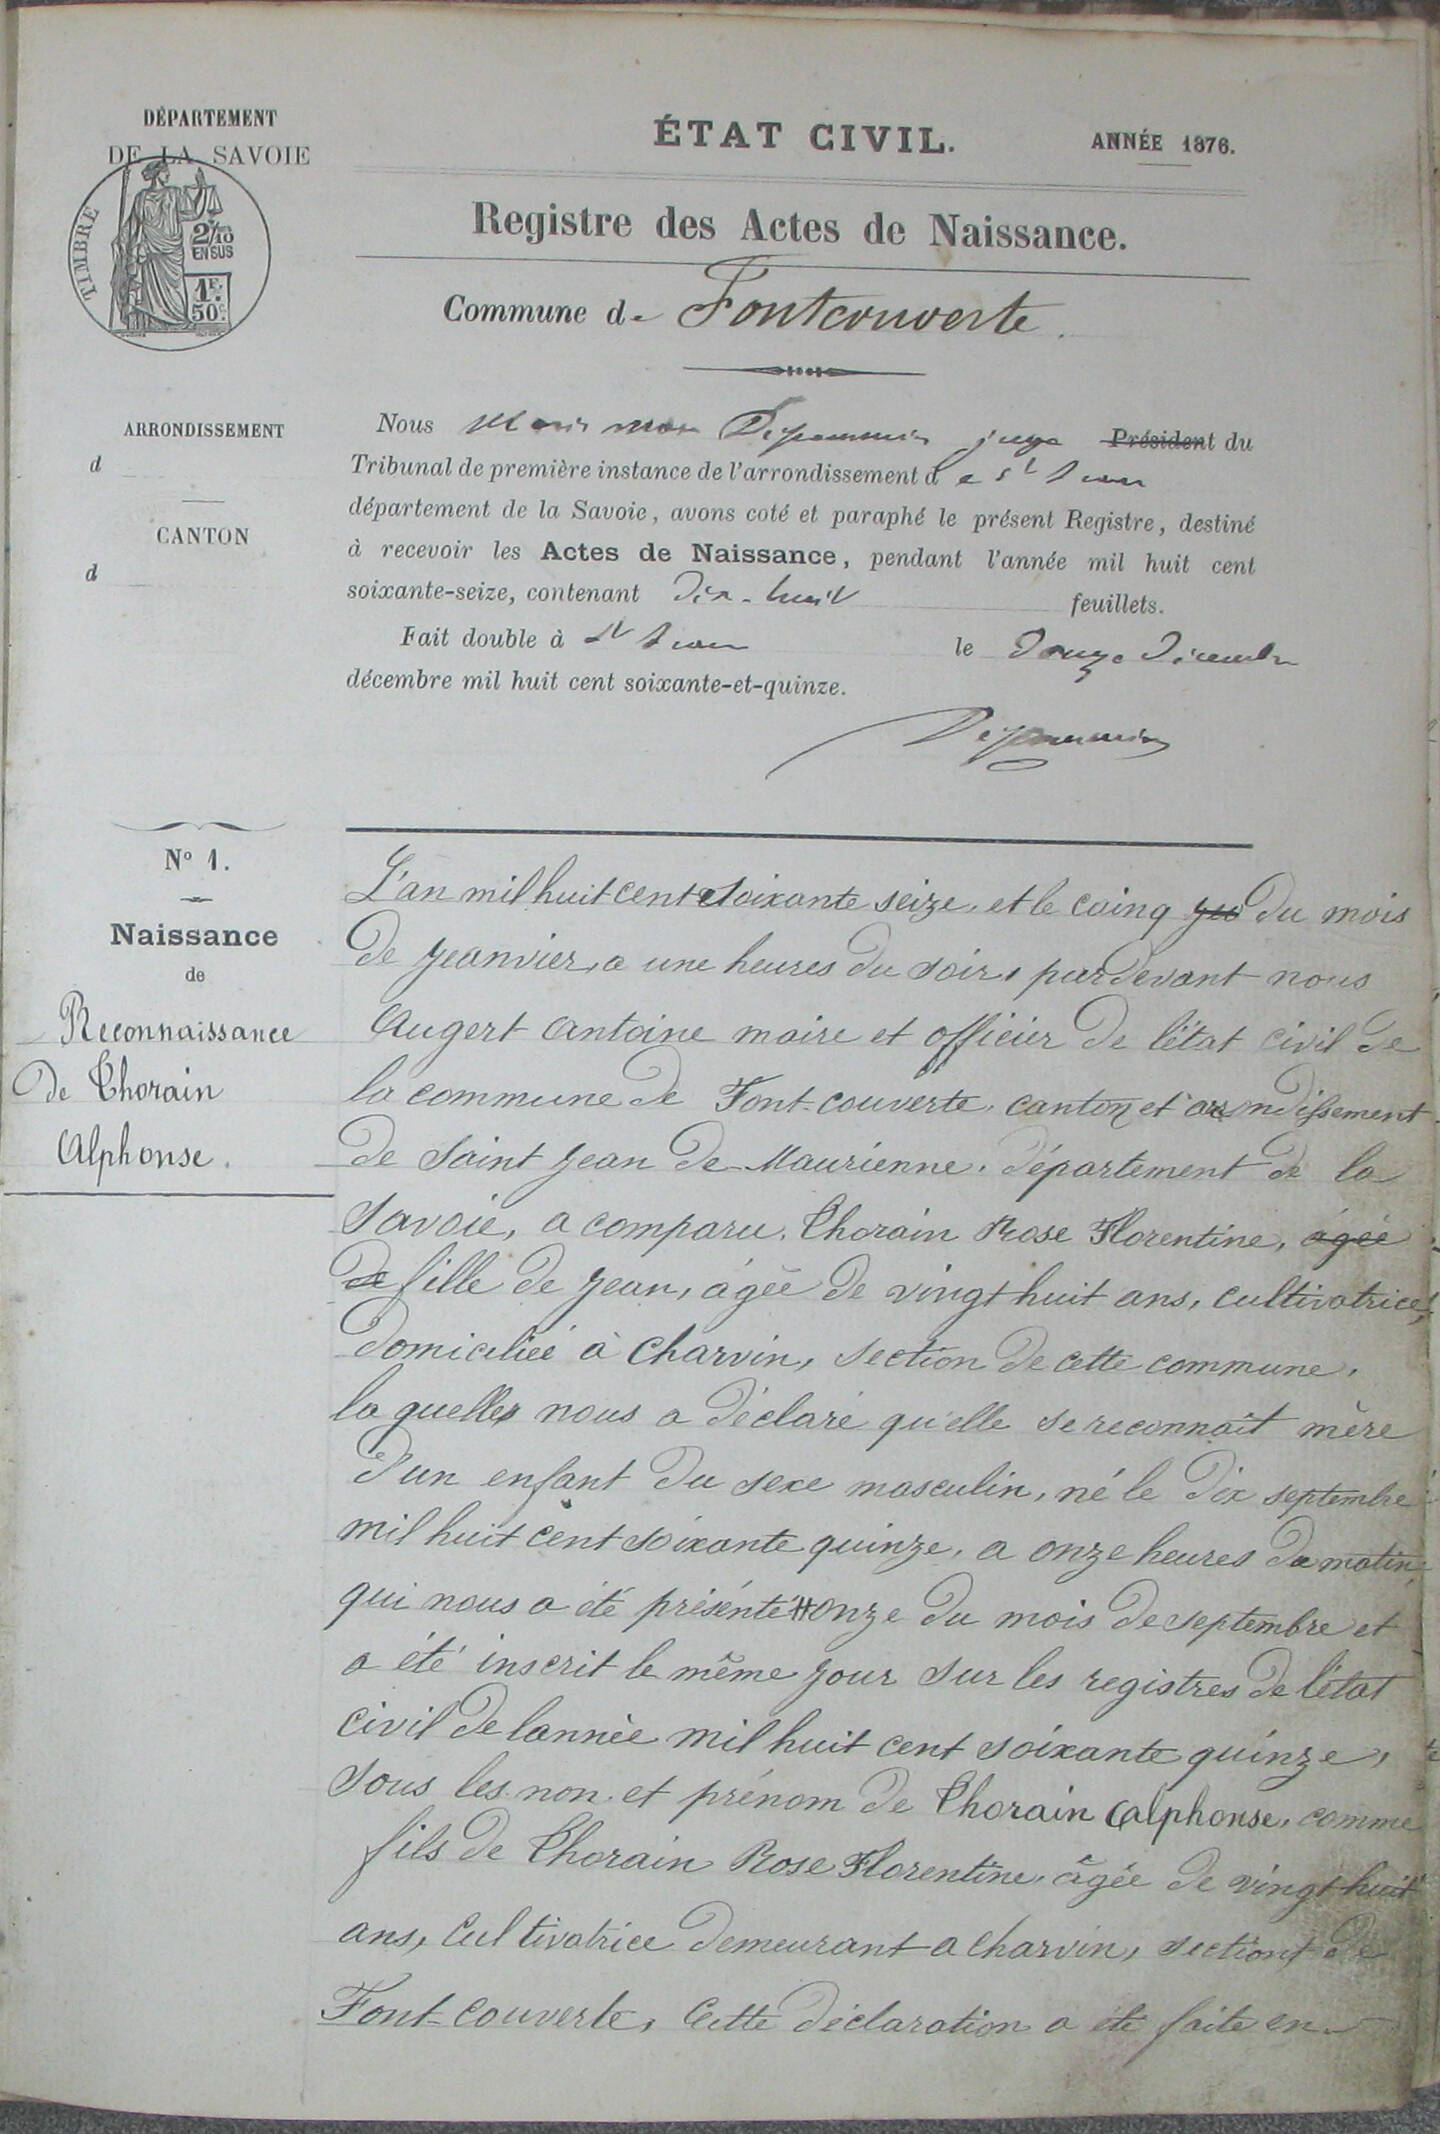 DÉPARTEMENT
DE LA SAVOIE
TIMBRE
2/10
EN SUS
1F.
50c.
ÉTAT CIVIL.
ANNÉE 1876.
Registre des Actes de Naissance.
Commune de Fontcouverte
ARRONDISSEMENT
d
CANTON
d
Nous juge Président du
Tribunal de première instance de l'arrondissement de St Jean
département de la Savoie, avons coté et paraphé le présent Registre, destiné
à recevoir les Actes de Naissance, pendant l'année mil huit cent
soixante-seize, contenant Dix-huit feuillets.
Fait double à St Jean le Douze Décembre
décembre mil huit cent soixante-et-quinze.
No 1.
Naissance
de
Reconnaissance
De Thorain
Alphonse.
L'an mil huit cent soixante seize, et le cinq Du mois
De Jeanvier, a une heures Du soir, pardevant nous
Augert Antoine maire et officier De l'état civil De
la commune De Font-couverte, canton et arrondissement
De Saint Jean De Maurienne, département De la
Savoie, a comparu, Thorain Rose Florentine, âgée
De fille De Jean, âgée De vingt huit ans, cultivatrice,
Domiciliée à Charvin, section De cette commune,
la quelle nous a Déclaré qu'elle se reconnaît mère
D'un enfant Du sexe masculin, né le Dix septembre
mil huit cent soixante quinze, a onze heures Du matin,
qui nous a été présenté onze Du mois De septembre et
a été inscrit le même jour sur les registres De l'état
civil De lannée mil huit cent soixante quinze,
sous les non et prénom De Thorain Alphonse, comme
fils De Thorain Rose Florentine, âgée De vingt huit
ans, Cultivatrice Demeurant a Charvin, section De
Font-Couverte, Cette Déclaration a été faite en